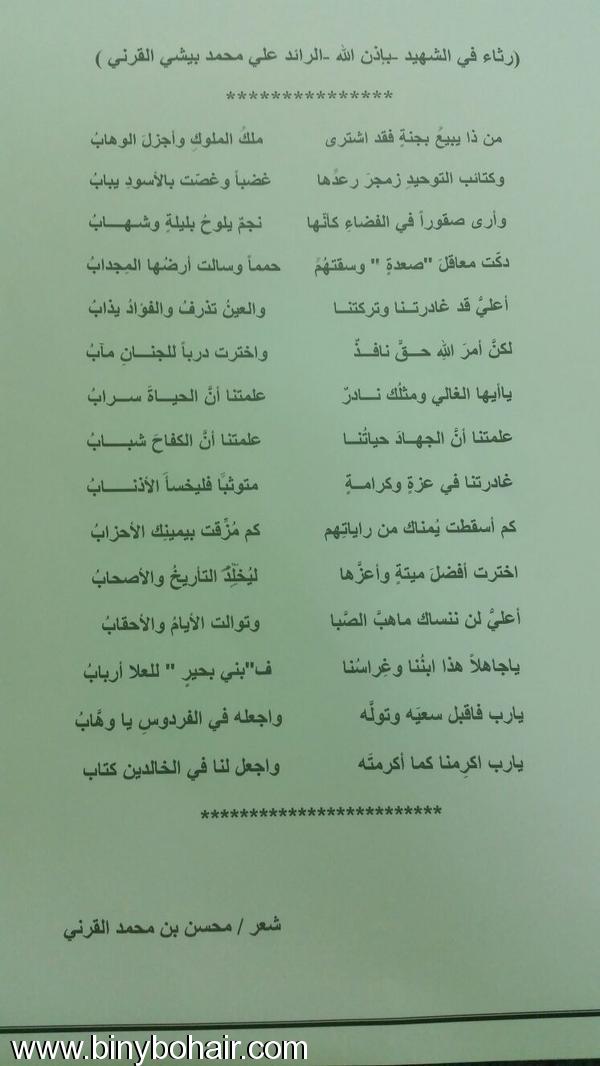 (رثاء في الشهيد -بإذن الله -الرائد علي محمد بيشي القرني )
***************
من ذا يبيعُ بجنةٍ فقد اشترى ملكُ الملوكِ وأجزلَ الوهابُ
وكتائب التوحيدِ زمجرَ رعدُها غضباً وغصّت بالأسودِ يبابُ
وأرى صقوراً في الفضاءِ كأنّها نجمٌ يلوحُ بليلةٍ وشـهـــابُ
دكّت معاقلَ "صعدةٍ " وسقتهُمُ حمماً وسالت أرضُها المِجدابُ
أعليَّ قد غادرتـنـا وتركتنــا والعينُ تذرفُ والفؤادُ يذابُ
لكنَّ أمرَ اللهِ حــقٌّ نافــذٌ واخترت درباً للجنـــانِ مآبُ
ياأيها الغالي ومثلُك نــادرٌ علمتنا أنَّ الحيــاةَ ســرابُ
علمتنا أنَّ الجهـادَ حياتُنــا علمتنا أنَّ الكفاحَ شبـــابُ
غادرتنا في عزةٍ وكرامــةٍ متوثبًا فليخسأَ الأذنـــابُ
كم أسقطت يُمناك من راياتِهم كم مُزِّقت بيمينِك الأحزابُ
اخترت أفضلَ ميتةٍ وأعزَّها ليُخلِّدَ التأريخُ والأصحابُ
أعليَّ لن ننساك ماهبَّ الصَّبا وتوالت الأيامُ والأحقابُ
ياجاهلاً هذا ابنُنا وغِراسُنا ف"بني بحيرٍ " للعلا أربابُ
يارب فاقبل سعيَه وتولَّه واجعله في الفردوسِ يا وهَّابُ
يارب اكرِمنا كما أكرمتَه واجعل لنا في الخالدين كتاب
*************************
شعر / محسن بن محمد القرني
www.binybohair.com